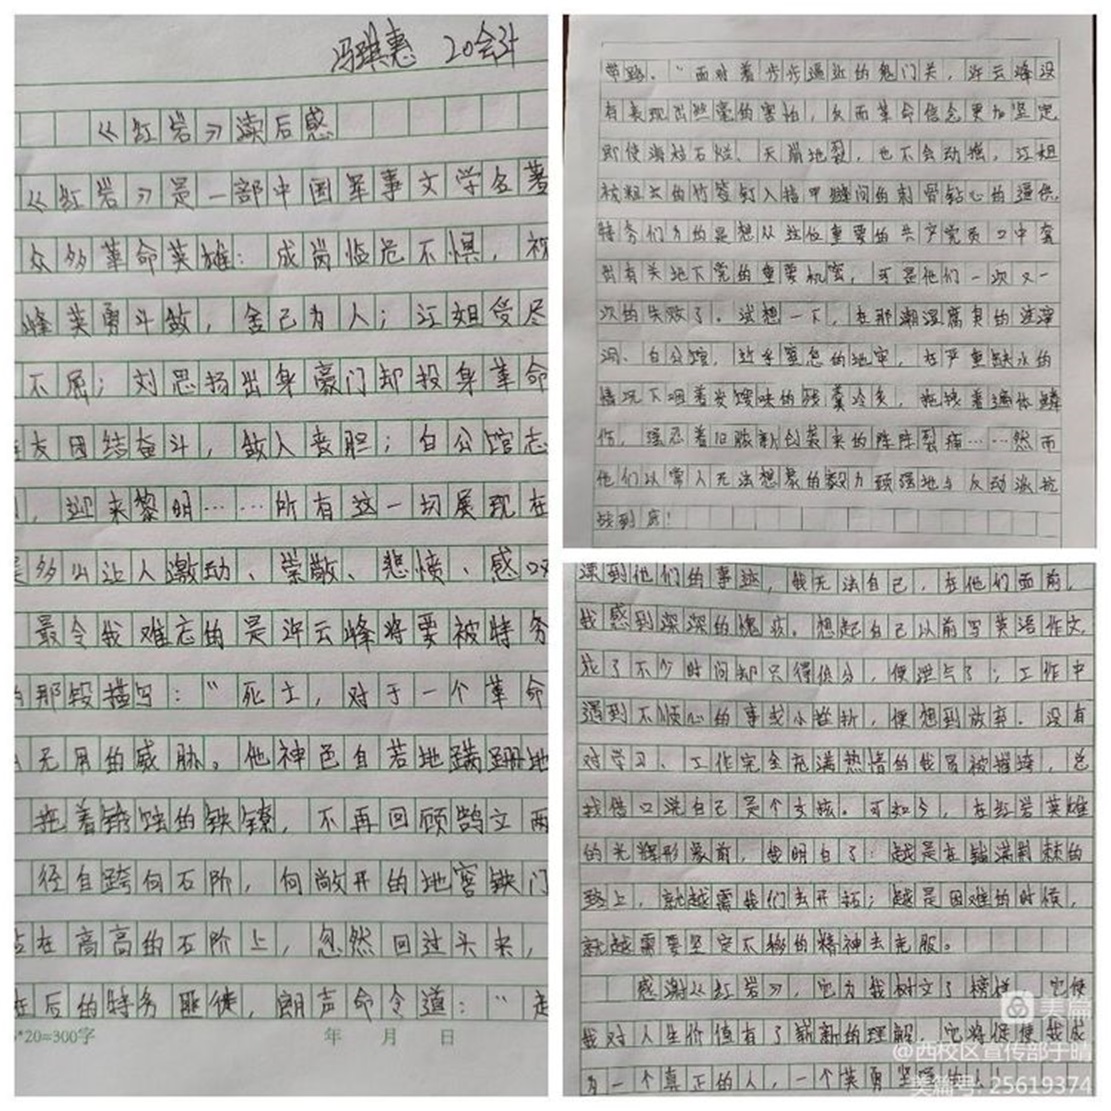 冯琪惠 20会计
《红岩》读后感
《红岩》是一部中国军事文学名著
众多革命英雄：成岗临危不惧，视
峰英勇斗敌，舍己为人；江姐受尽
不屈；刘思扬出身豪门却投身革命
友团结奋斗，敌人丧胆；白公馆志
，迎来黎明……所有这一切展现在
多么让人激动、崇敬、悲愤、感叹
最令我难忘的是许云峰将要被特务
那段描写：“死亡，对于一个革命
无用的威胁。他神色自若地蹒跚地
拖着锈蚀的铁镣，不再回顾鹄立两
径自跨向石阶，向敞开的地窖铁门
站在高高的石阶上，忽然回过头来，
在后的特务匪徒，朗声命令道：“走
*20=300字 年 月 日
带路。”面对着步步逼近的鬼门关，许云峰没
有表现出丝毫的害怕，反而革命信念更加坚定
即使海枯石烂、天崩地裂，也不会动摇，江姐
被粗长的竹签钉入指甲缝间的刺骨钻心的逼供，
特务们为的是想从这位重要的共产党员口中套
出有关地下党的重要机密，可是他们一次又一
次的失败了。试想一下，在那潮湿腐臭的渣滓
洞、白公馆，近乎窒息的地牢，在严重缺水的
情况下咽着发馊味的残羹冷炙，拖拽着遍体鳞
伤，强忍着旧脓新创袭来的阵阵裂痛……然而
他们以常人无法想象的毅力顽强地与反动派抗
战到底！
读到他们的事迹，我无法自已，在他们面前，
我感到深深的愧疚。想起自己以前写英语作文
花了不少时间却只得低分，便泄气了；工作中
遇到不顺心的事或小挫折，便想到放弃。没有
对学习、工作完全充满热情的我屡被摧垮，总
找借口说自己是个女孩。可如今，在红岩英雄
的光辉形象前，我明白了：越是在铺满荆棘的
路上，就越需我们去开拓；越是困难的时候，
就越需要坚定不移的精神去克服。
感谢《红岩》，它为我树立了榜样，它使
我对人生价值有了崭新的理解，它将促使我成
为一个真正的人，一个英勇坚强的人！
美篇
@西校区宣传部于晴
美篇号: 25619374